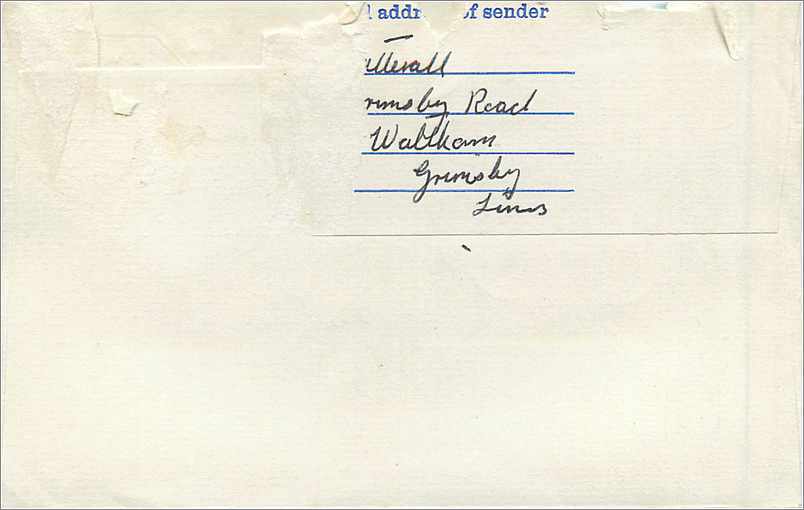 addr of sender
rimsby Road
Waltham
Grimsby
Lincs